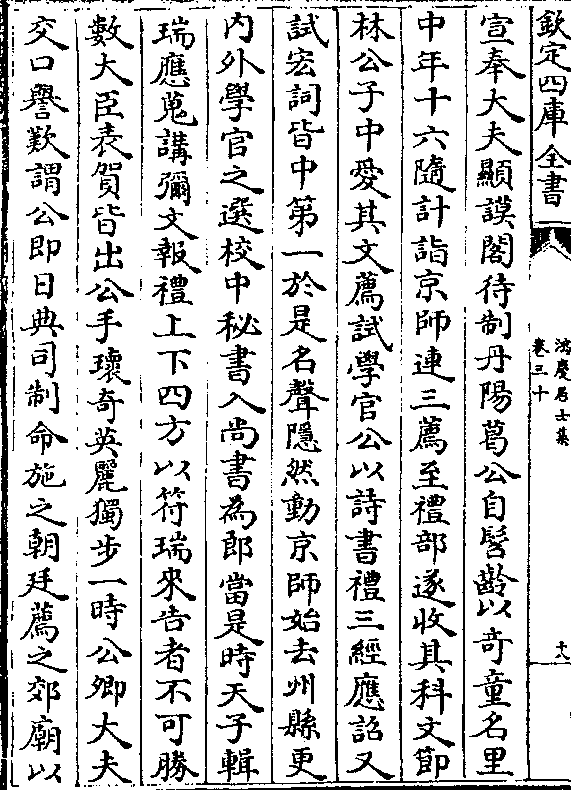 欽定四庫全書
鴻慶居士集
卷三十
十八
宣奉大夫顯謨閣待制丹陽葛公自髫齡以奇童名里
中年十六隨計詣京師連三薦至禮部遂收其科文節
林公子中愛其文薦試學官公以詩書禮三經應詔又
試宏詞皆中第一於是名聲隱然動京師始去州縣更
内外學官之選校中秘書入尚書為郎當是時天子輯
瑞應蒐講彌文報禮上下四方以符瑞來告者不可勝
數大臣表賀皆出公手瓌奇英麗獨步一時公卿大夫
交口譽歎謂公即日典司制命施之朝廷薦之郊廟以